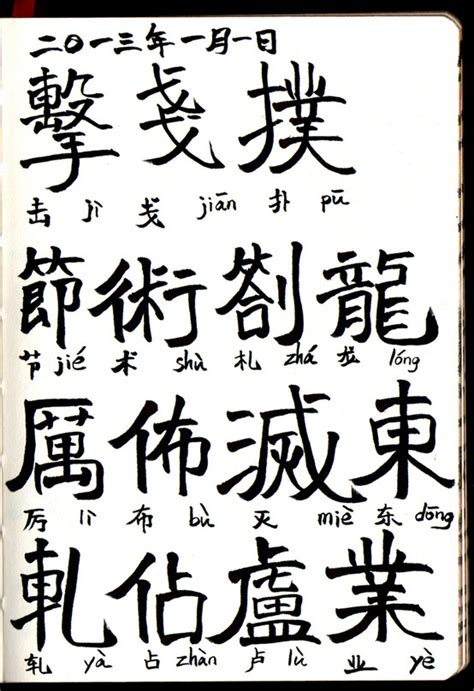 二〇一三年一月一日
擊 戔 撲
击 jī 戋 jiān 扑 pū
節 術 劄 龍
节 jié 术 shù 札 zhá 龙 lóng
厲 佈 滅 東
厉 lì 布 bù 灭 miè 东 dōng
軋 佔 盧 業
轧 yà 占 zhàn 卢 lù 业 yè